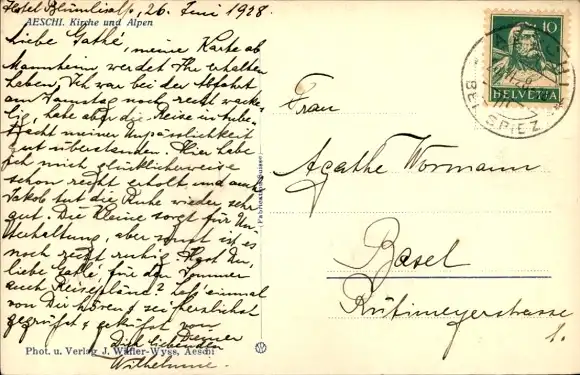 Hotel Blümlisalp, 26. Juni 1928
AESCHI. Kirche und Alpen
Liebe Gathé, meine Karte ab
Mannheim werdet Ihr erhalten
haben, Ich war bei der Abfahrt
am Samstag noch recht wacke-
lig, habe aber die Reise in Anbe-
tracht meiner Unpässlichkeit
gut überstanden. Hier habe
ich mich glücklicherweise
schon recht erholt, und auch
Jakob tut die Ruhe wieder sehr
gut. Die Kleine sorgt für Un-
terhaltung, aber sonst ist es
noch recht ruhig. Hast Du,
liebe Gathé für den Sommer
auch Reisepläne? Lass' einmal
von Dir hören & sei herzlichst
gegrüsst & geküsst von
Deiner
Dich liebenden
Wilhelmine.
Phot. u. Verlag J. Wäfler-Wyss, Aeschi
Fabrication Suisse
10
HELVETIA
AESCHI
BEI SPIEZ
Frau
Agathe Wormann
Basel
Rütimeyerstrasse
1.